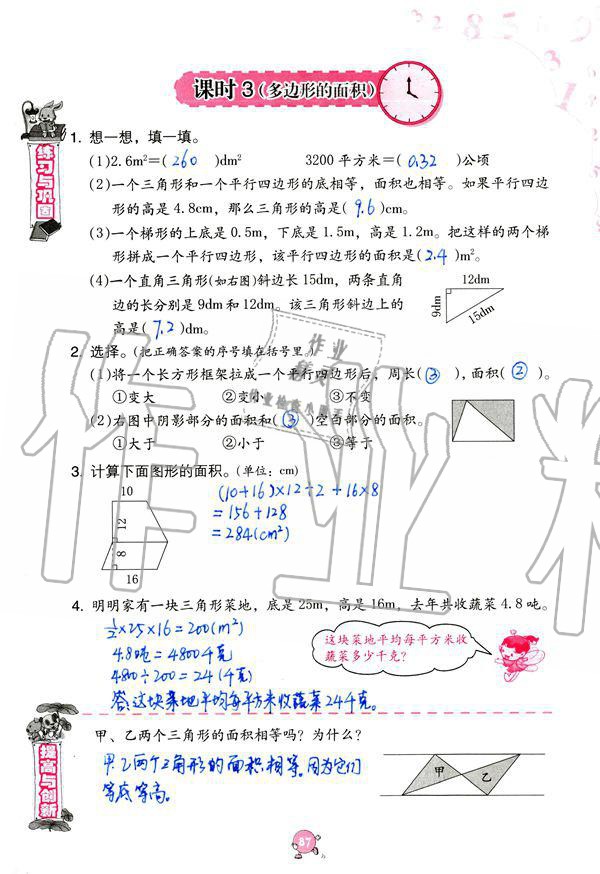 课时3(多边形的面积)
练习与巩固
1. 想一想，填一填。
(1)2.6m²=( 260 )dm² 3200平方米=( 0.32 )公顷
(2)一个三角形和一个平行四边形的底相等，面积也相等。如果平行四边
形的高是4.8cm，那么三角形的高是( 9.6 )cm。
(3)一个梯形的上底是0.5m，下底是1.5m，高是1.2m。把这样的两个梯
形拼成一个平行四边形，该平行四边形的面积是( 2.4 )m²。
(4)一个直角三角形(如右图)斜边长15dm，两条直角
边的长分别是9dm和12dm。该三角形斜边上的
高是( 7.2 )dm。
12dm
9dm
15dm
2. 选择。(把正确答案的序号填在括号里。)
(1)将一个长方形框架拉成一个平行四边形后，周长( ③ )，面积( ② )。
①变大 ②变小 ③不变
(2)右图中阴影部分的面积和( ③ )空白部分的面积。
①大于 ②小于 ③等于
3. 计算下面图形的面积。(单位：cm)
10
12
8
16
(10+16)×12÷2+16×8
=156+128
=284(cm²)
4. 明明家有一块三角形菜地，底是25m，高是16m，去年共收蔬菜4.8吨。
½×25×16=200(m²)
4.8吨=4800千克
4800÷200=24(千克)
答:这块菜地平均每平方米收蔬菜24千克。
这块菜地平均每平方米收
蔬菜多少千克？
提高与创新
甲、乙两个三角形的面积相等吗？为什么？
甲、乙两个三角形的面积相等。因为它们
等底等高。
甲
乙
87
作业精灵